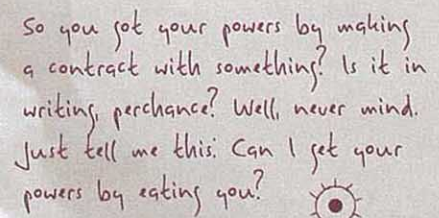 So you got your powers by making
a contract with something? Is it in
writing, perchance? Well, never mind.
Just tell me this: Can I get your
powers by eating you?